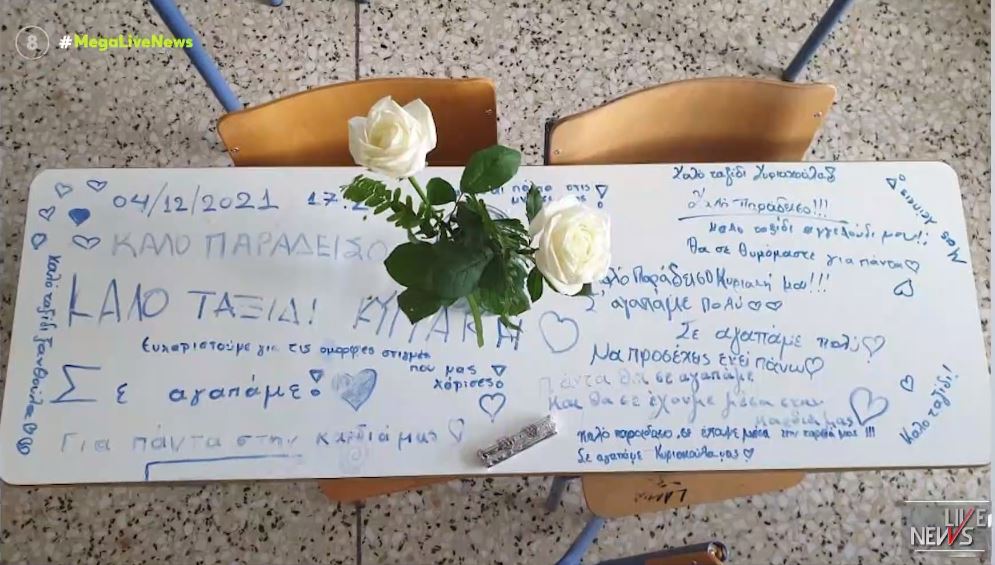 8 #MegaLiveNews
04/12/2021 17.
ΚΑΛΟ ΠΑΡΑΔΕΙΣΟ
ΚΑΛΟ ΤΑΞΙΔΙ ΚΥΡΙΑΚΗ
Ευχαριστούμε για τις όμορφες στιγμές
που μας
χάρισες
Σε αγαπάμε!
Για πάντα στην καρδιά μας
Καλό ταξίδι Ξανθούλα
στις
Καλό ταξίδι Κυριακούλα
Παράδεισο!!!
Καλό ταξίδι αγγελούδι μου!!
Θα σε θυμόμαστε για πάντα
Καλό Παράδεισο Κυριακή μου!!!
Σ' αγαπάμε πολύ
Σε αγαπάμε πολύ
Να προσέχεις εκεί πάνω
Πάντα θα σε αγαπάμε
και θα σε έχουμε μέσα στην
καρδιά μας
Καλό παράδεισο σε έχουμε μέσα την καρδιά μας !!!
Σε αγαπάμε Κυριακούλα μας
Μας λείπεις
Καλό ταξίδι!
LIVE
NEWS